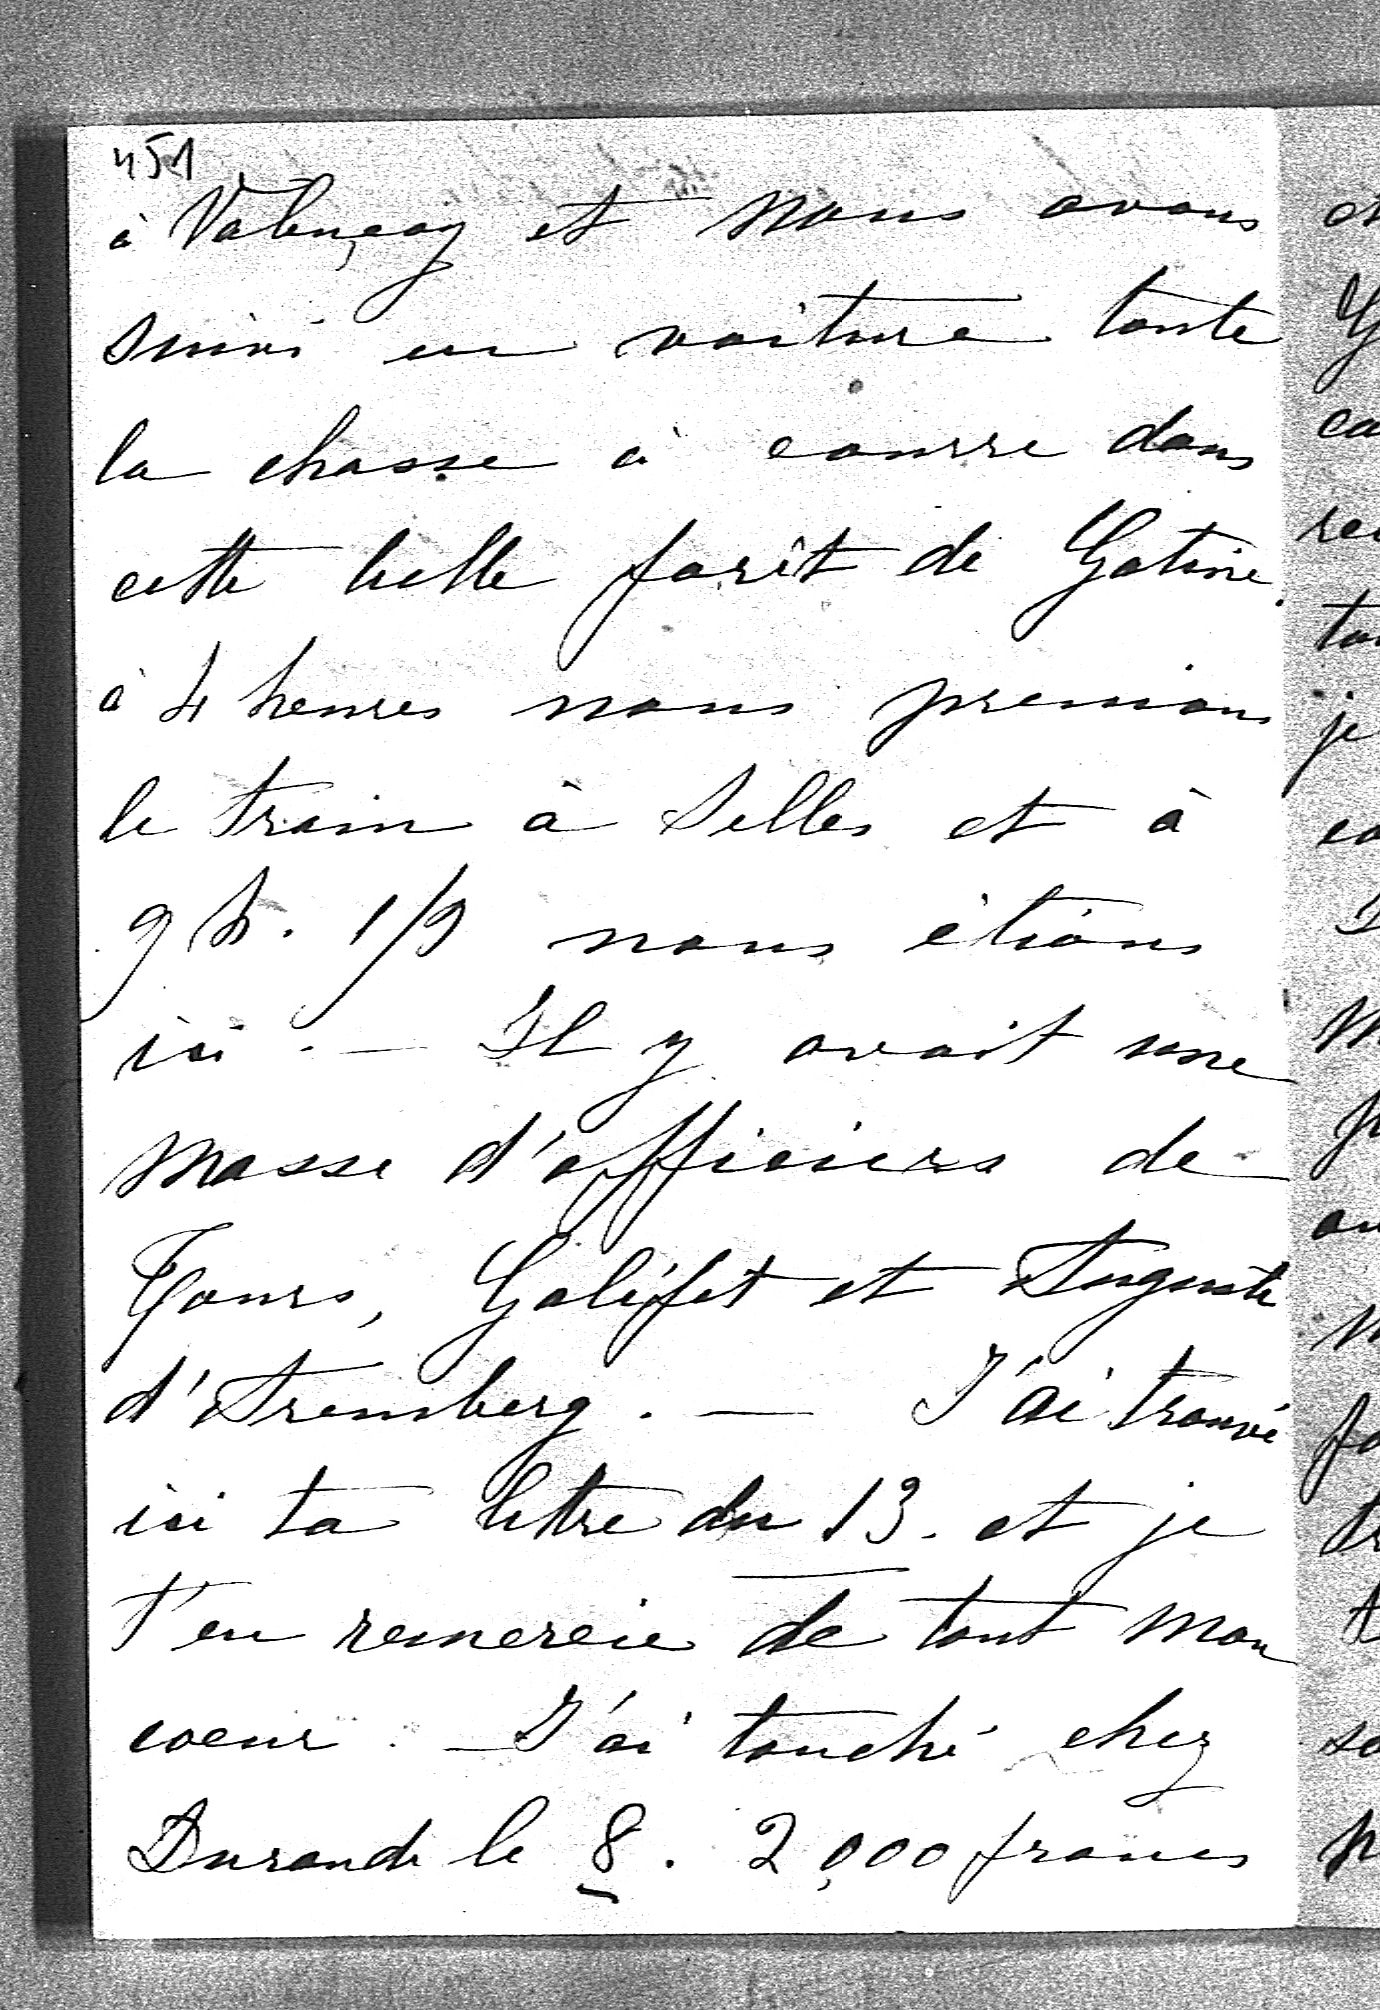 451
à Valençay et nous avons
suivi en voiture toute
la chasse à courre dans
cette belle forêt de Gatine.
à 4 heures nous prenions
le train à Selles et à
9 h. 1/2 nous étions
ici. — Il y avait une
masse d'officiers de
Tours, Galifet et Auguste
d'Aremberg. — J'ai trouvé
ici ta lettre du 13. et je
t'en remercie de tout mon
coeur. — J'ai touché chez
Durand le 8. 2,000 francs